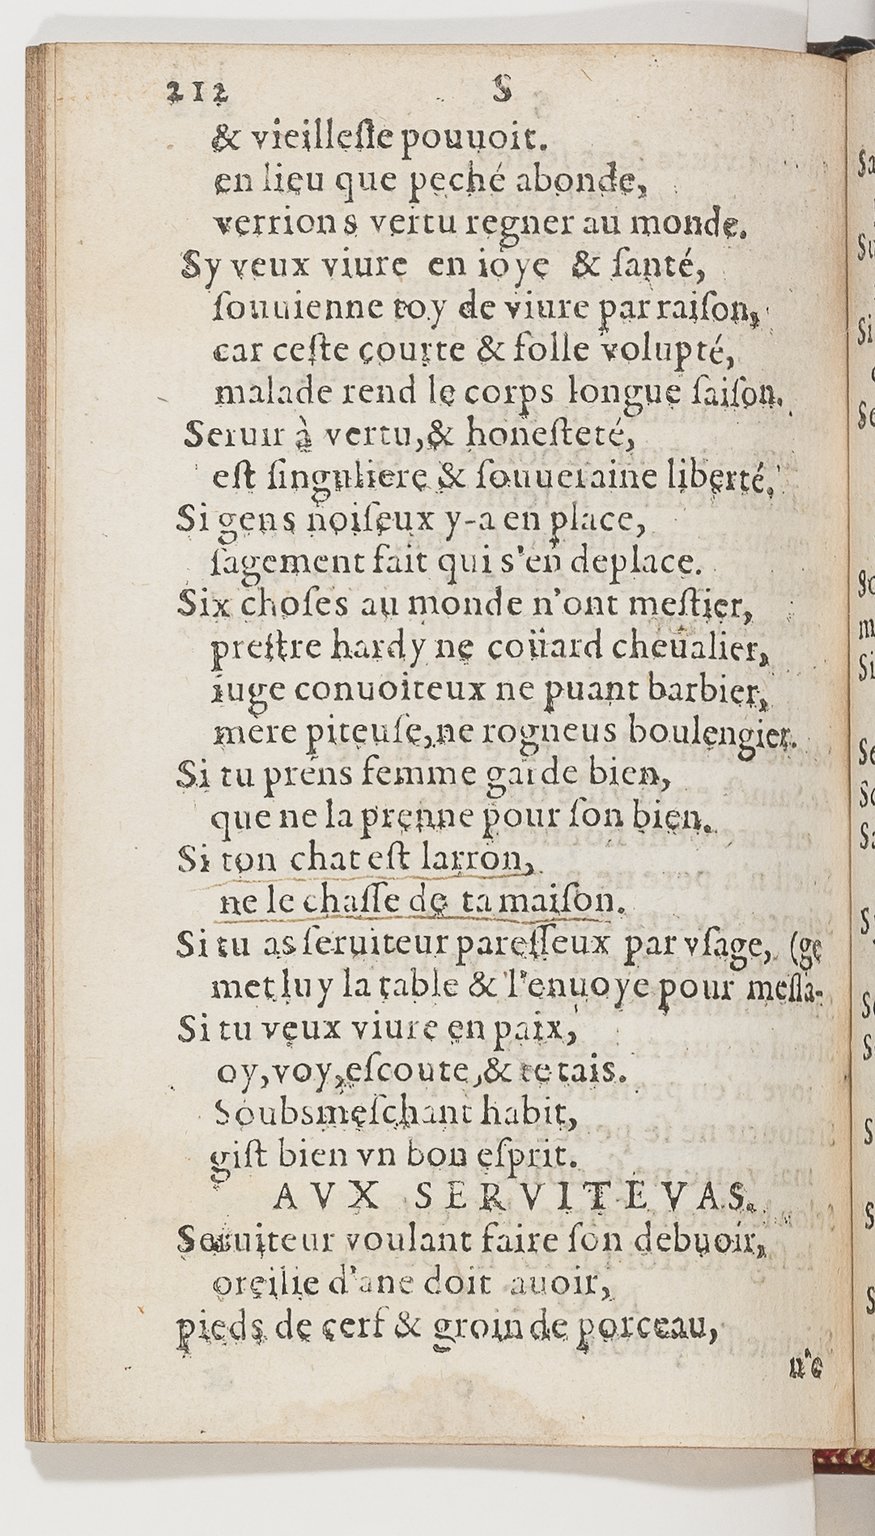 212 S
& vieilleſſe pouuoit.
en lieu que peché abonde,
verrions vertu regner au monde.
Sy veux viure en ioye & ſanté,
ſouuienne toy de viure par raiſon,
car ceſte courte & folle volupté,
malade rend le corps longue ſaiſon.
Seruir à vertu,& honeſteté,
eſt ſinguliere & ſouueraine liberté,
Si gens noiſeux y-a en place,
ſagement fait qui s'en deplace.
Six choſes au monde n'ont meſtier,
preſtre hardy ne coüard cheualier,
iuge conuoiteux ne puant barbier,
mere piteuſe,ne rogneus boulengier.
Si tu prens femme garde bien,
que ne la prenne pour ſon bien.
Si ton chat eſt larron,
ne le chaſſe de ta maiſon.
Si tu as ſeruiteur pareſſeux par vſage, (ge
met luy la table & l'enuoye pour meſſa-
Si tu veux viure en paix,
oy,voy,eſcoute,& te tais.
Soubs meſchant habit,
giſt bien vn bon eſprit.
AVX SERVITEVAS.
Seruiteur voulant faire ſon debuoir,
oreille d'ane doit auoir,
pieds de cerf & groin de porceau,
n'e